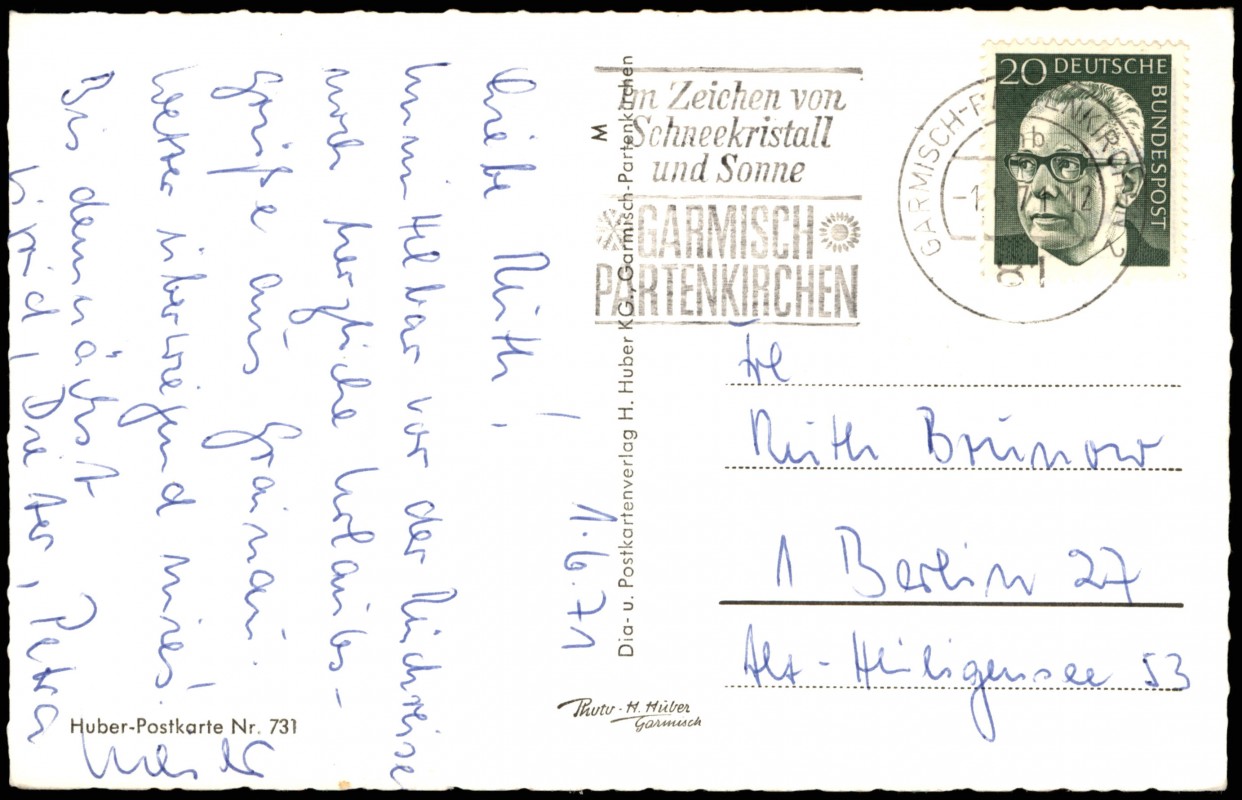 1.6.71
Liebe Ruth!
Unmittelbar vor der Rückreise
noch herzliche Urlaubs-
grüße aus Grainau.
Wetter überwiegend mies!
Bis demnächst
Dieter, Petra
Huber-Postkarte Nr. 731
M
Dia- u. Postkartenverlag H. Huber KG., Garmisch-Partenkirchen
Photo-H. Huber
Garmisch
Im Zeichen von
Schneekristall
und Sonne
GARMISCH
PARTENKIRCHEN
GARMISCH-PARTENKIRCHEN 2
b
81
20 DEUTSCHE
BUNDESPOST
Frl
Ruth Brunow
1 Berlin 27
Alt-Heiligensee 53